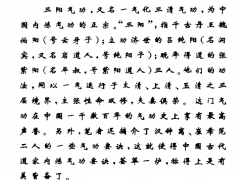 三阳气功，又名一气化三清气功，为中
国内炼气功的正宗。“三阳”，指千古丹王魏
伯阳（号云牙子）；立功济世的吕纯阳（名洞
宾，又名岩道人，号纯阳子）；晚年得道的张
紫阳（名平叔，号紫阳道人）三人。他们的功
法，同以一气进行于太清、上清、玉清之三
层境界，主张性命双修，夫妻俱荣。这门气
功在中国一千数百年的气功史上享有最高
声誉。另外，笔者还摘介了汉钟离、崔希范
二人的一些气功要诀，这就使得中国古代
道家内炼气功要诀，荟萃一炉，称得上是有
美皆备了。